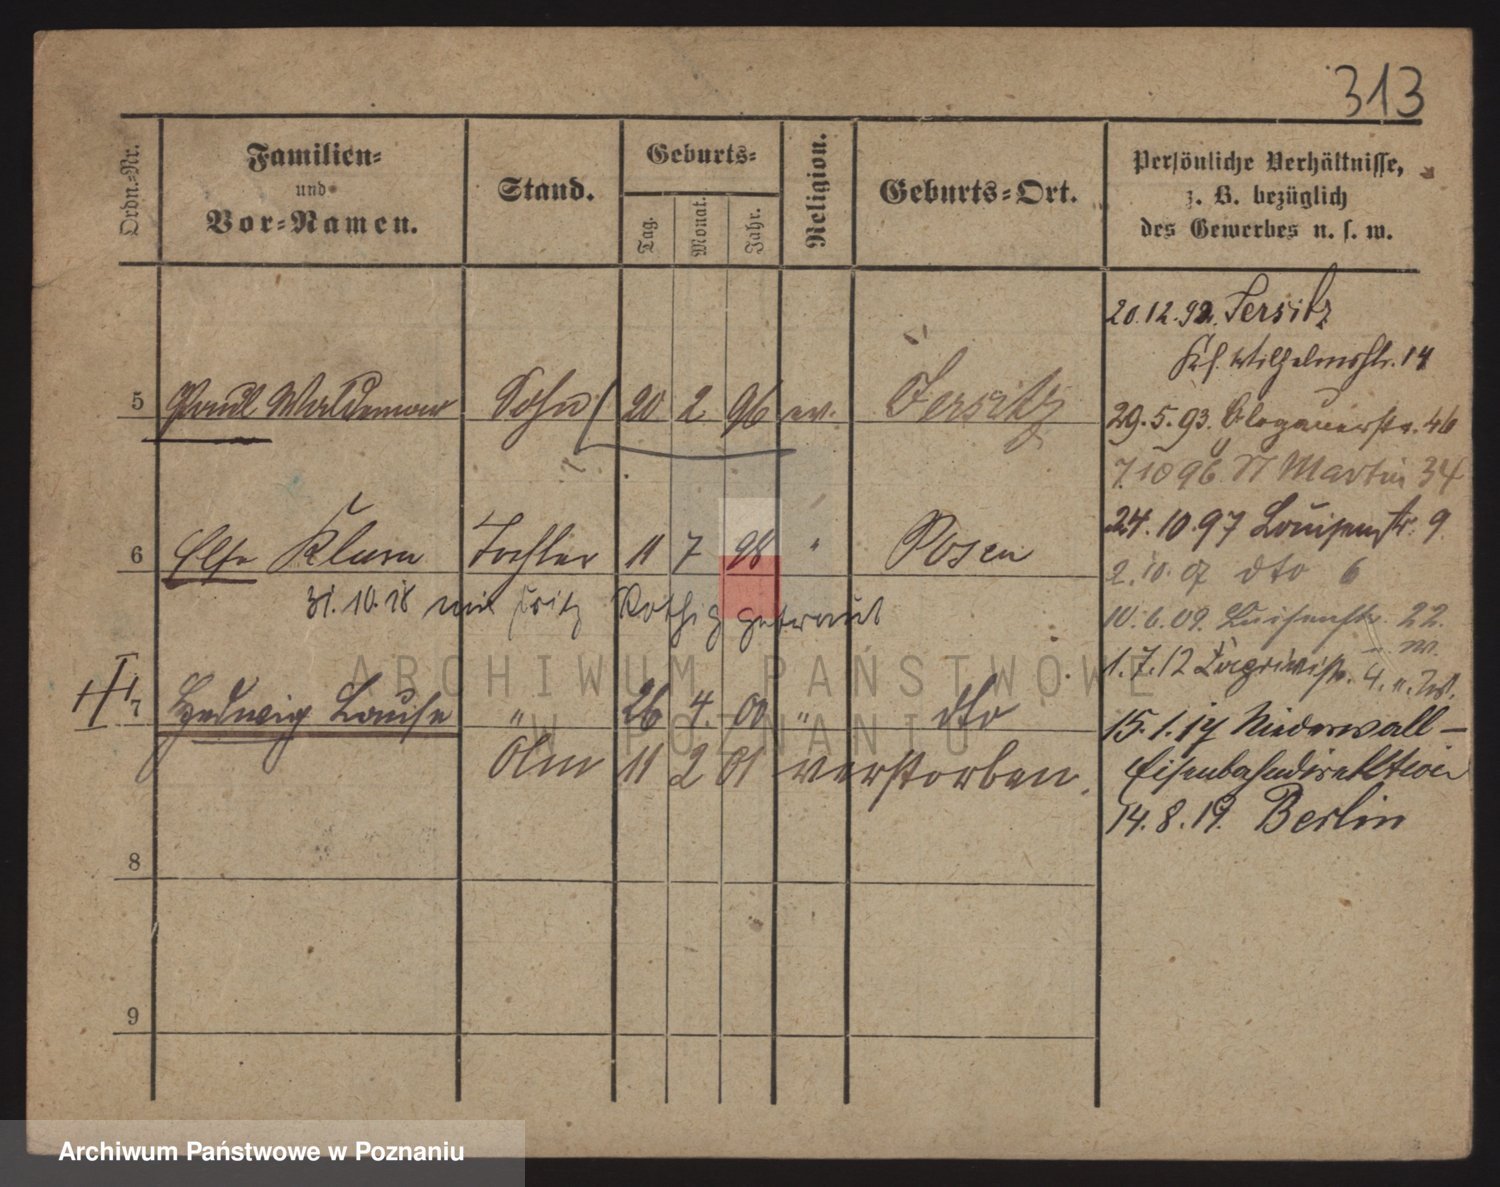 313
Ordn.-Nr.
Familien-
und
Vor-Namen.
Stand.
Geburts-
Tag.
Monat.
Jahr.
Religion.
Geburts-Ort.
Persönliche Verhältnisse,
z. B. bezüglich
des Gewerbes u. s. w.
5 Paul Waldemar Sohn 20 2 96 ev. Jersitz
6 Else Klara Tochter 11 7 98 " Posen
31.10.18 mit Fritz getraut
7 Hedwig Louise " 26 4. 00 " dto
Am 11 2 01 verstorben.
8
9
20.12.92. Jersitz
Kl. Wilhelmstr. 14
29.5.93. Glogauerstr. 46
7.10 96. St Martin 34
24.10.97 Louisenstr. 9.
2.10.07 dto 6
10.6.09. Luisenstr. 22.
1.7.12
15.1.17 Niederwall –
Eisenbahndirektion
14.8.19. Berlin
ARCHIWUM PAŃSTWOWE
W POZNANIU
Archiwum Państwowe w Poznaniu